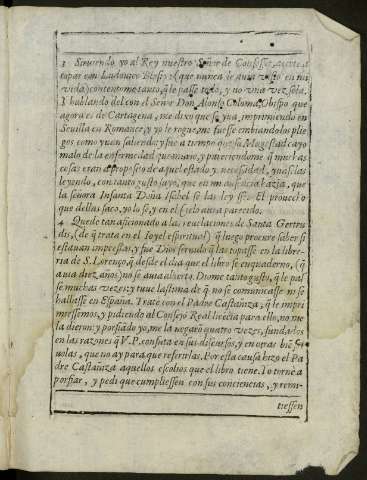 3 Siruiendo yo al Rey nuestro Señor de Confessor, acerte a
topar con Ludouico Blosio (que nunca le auia visto en mi
vida) contentome tanto, q̃ le passè todo, y no vna vez sola.
Y hablando del con el Señor Don Alonso Coloma, Obispo que
agora es de Cartagena, me dixo que se yua imprimiendo en
Seuilla en Romance, y yo le roguè, me fuesse embiando los plie
gos como yuan saliendo; y fue a tiempo que su Magestad cayò
malo de la enfermedad que murio, y pareciendome q̃ muchas
cosas eran a proposito de aquel estado y necessidad, y naselas
leyendo, con tanto gusto suyo, que en mi ausencia hazia, que
la señora Infanta Doña Isabel se las leyesse. El prouecho
que dellas saco, yo lo se, y en el Cielo aura parecido.
4 Quede tan aficionado a las reuelaciones de Santa Gertru
dis, (de q̃ trata en el Ioyel espiritual) q̃ luego procurè saber si
estauan impressas, y fue Dios seruido q̃ las topasse en la libre-
ria de S. Lorenço, q̃ desde el dia que el libro se enquaderno, (q̃
auia diez años) no se auia abierto. Diome tanto gusto, q̃ le pas
se muchas vezes: y tuue lastima de q̃ no se comunicasse ni se
hallasse en España. Tratè con el Padre Castañiza, q̃ le impri
miessemos, y pidiendo al Consejo Real licẽcia para ello, no me
la dieron: y porfiãdo yo, me la negarõ quatro vezes, fundados
en las razones q̃ V. P. confuta en sus discursos, y en otras biẽ fri
uolas, que no ay para que referirlas. Por esta causa hizo el Pa
dre Castañiza aquellos escolios que el libro tiene. Yo tornè a
porfiar, y pedi que cumpliessen con sus conciencias, y remi-
tiessen